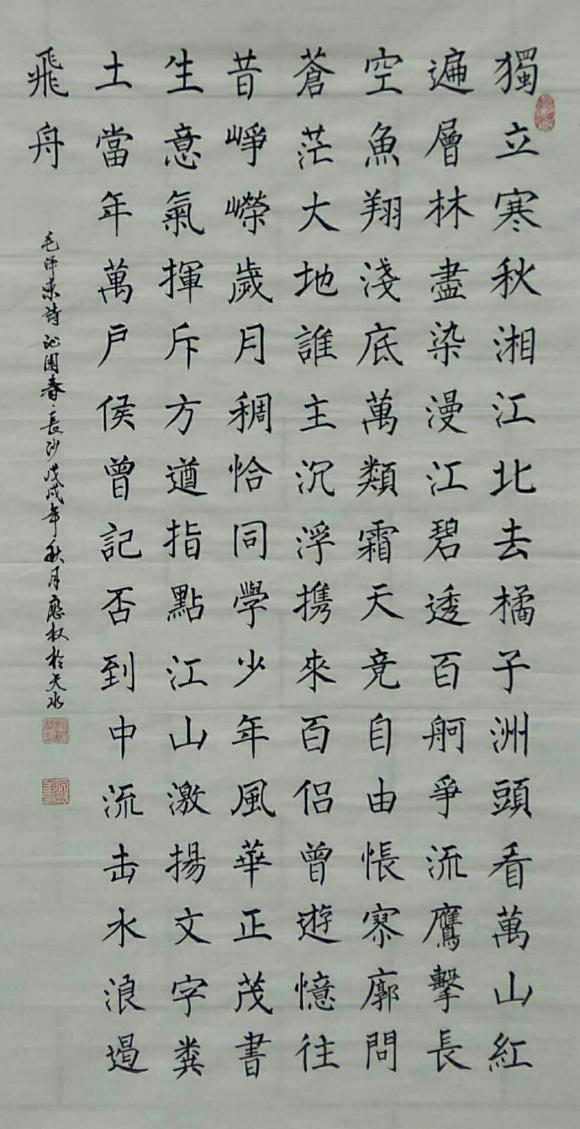 獨立寒秋湘江北去橘子洲頭看萬山紅
遍層林盡染漫江碧透百舸爭流鷹擊長
空魚翔淺底萬類霜天竞自由悵寥廓問
蒼茫大地誰主沉浮携來百侣曾遊憶往
昔崢嶸歲月稠恰同學少年風華正茂書
生意氣揮斥方遒指點江山激揚文字粪
土當年萬戶侯曾記否到中流击水浪遏
飛舟
毛泽東詩沁園春·長沙戊戌年秋月應权於天水